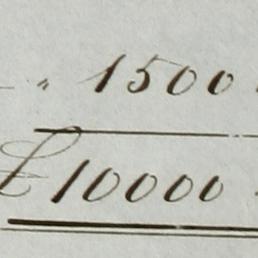 " 1500
£ 10000